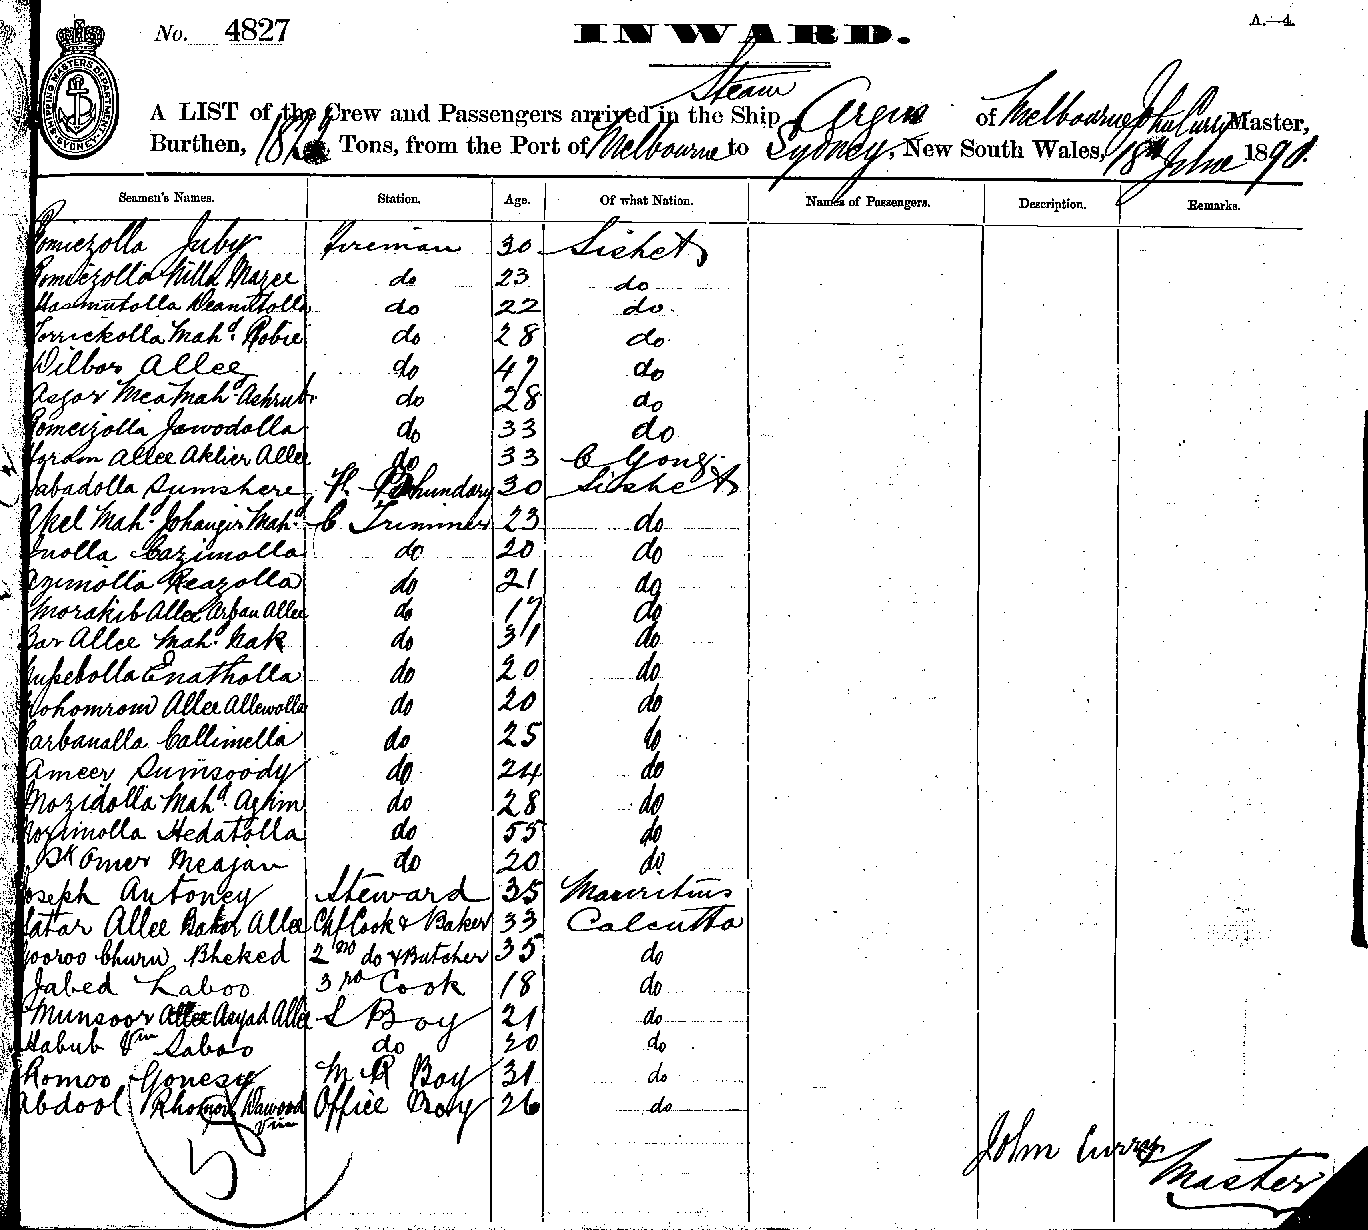 No. 4827
INWARD.
A.—4.
SHIPPING MASTERS DEPARTMENT SYDNEY
Steam
A LIST of the Crew and Passengers arrived in the Ship Argus of Melbourne John Curry Master,
Burthen, Tons, from the Port of Melbourne to Sydney, New South Wales, 18th June 1890.
Seamen's Names. Station. Age. Of what Nation. Names of Passengers. Description. Remarks.
Juby Fireman 30 Sishet
Villa Mazee do 23 do
Hasmutolla do 22 do
Mahd. Robie do 28 do
Dilbor Allee do 47 do
Asgor Mea Mahd. Ashrub do 28 do
Jowodolla do 33 do
Allee Aklier Allee do 33 C Gong
Sumshere F. Bhundary 30 Sishet
Mahd. Johangir Mahd. C Trimmer 23 do
Cazimolla do 20 do
Reazolla do 21 do
Morakib Allee Arfan Allee do 17 do
Allee Mahd. Nak do 31 do
Enatholla do 20 do
Allee Allewolla do 20 do
Callimella do 25 do
Ameer Sumsoody do 24 do
Mozidolla Mahd. Azhim do 28 do
Hedatolla do 55 do
Sk Omer Meajan do 20 do
Joseph Antoney Steward 35 Mauritius
Allee Baker Allee Chf Cook & Baker 33 Calcutta
Gooroo Churn Bheked 2nd do & Butcher 35 do
Jabed Laboo 3rd Cook 18 do
Munsoor Allee Asyad Allee S Boy 21 do
Habub Vm Saboo do 20 do
Romoo Gonesy M R Boy 31 do
Abdool Rhomon Dawood Office Boy 26 do
Vm
58
John Curry
Master